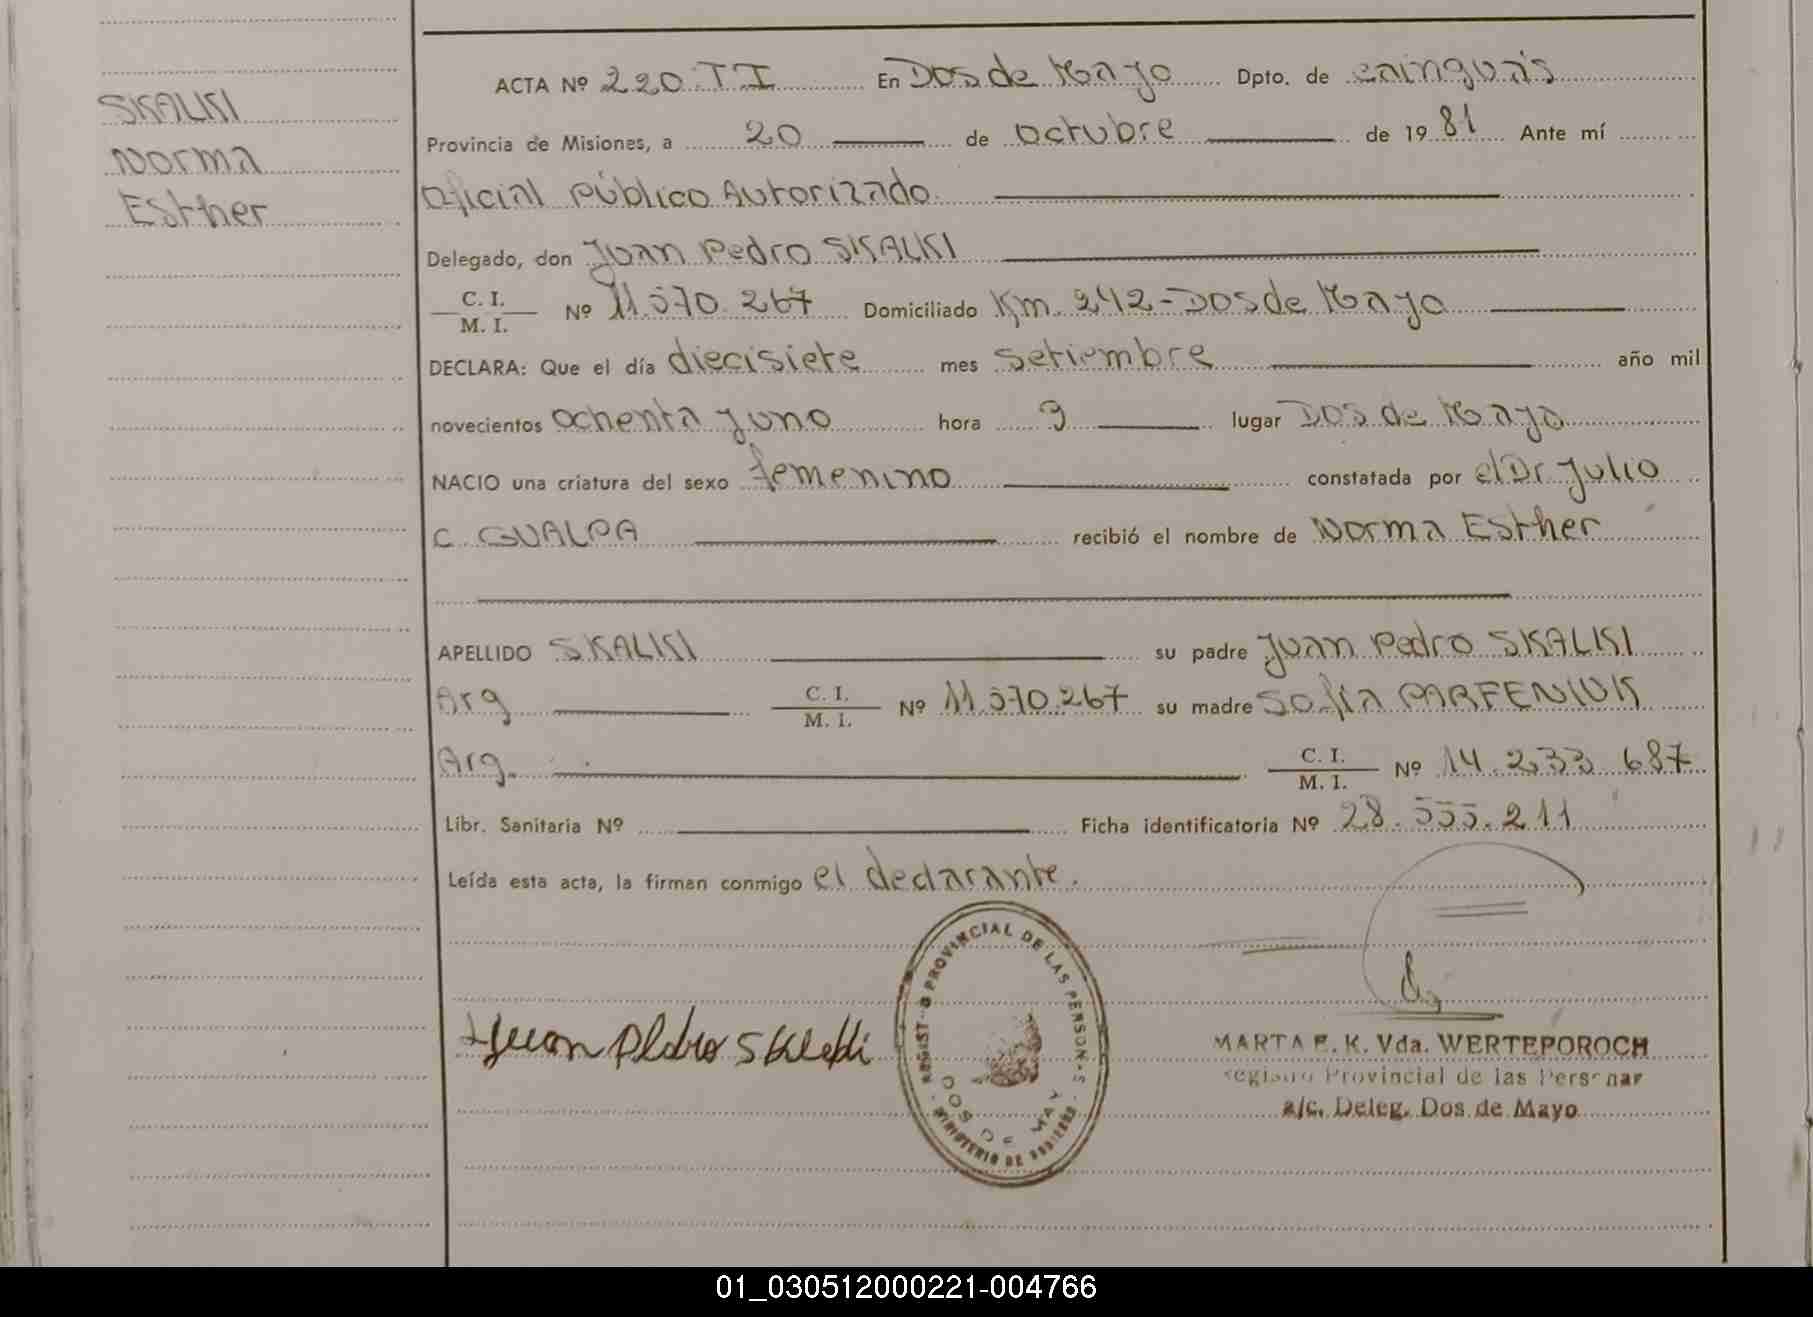 SKALKI
Norma
Esther
ACTA Nº 220 TI En Dos de Mayo Dpto. de Cainguás
Provincia de Misiones, a 20 de octubre de 1981 Ante mí
Oficial Público Autorizado
Delegado, don Juan Pedro SKALKI
C. I.
M. I. Nº 11.570.267 Domiciliado Km. 242 - Dos de Mayo
DECLARA: Que el día diecisiete mes setiembre año mil
novecientos ochenta y uno hora 9 lugar Dos de Mayo
NACIO una criatura del sexo femenino constatada por el Dr Julio
C. GUALPA recibió el nombre de Norma Esther
APELLIDO SKALKI su padre Juan Pedro SKALKI
Arg C. I.
M. I. Nº 11.570.267 su madre Sofia PARFENIUK
Arg. C. I.
M. I. Nº 14.233.687
Libr. Sanitaria Nº Ficha identificatoria Nº 28.555.211
Leída esta acta, la firman conmigo el declarante.
Juan Pedro Skalki
PROVINCIAL DE LAS PERSONAS
DOS DE MAY
MINISTERIO DE GOBIERNO
MARTA E. K. Vda. WERTEPOROCH
Registro Provincial de las Personas
a/c. Deleg. Dos de Mayo
01_030512000221-004766